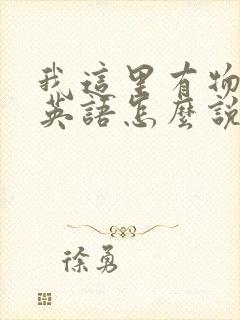 我這里有物
英語怎麼說
徐勇